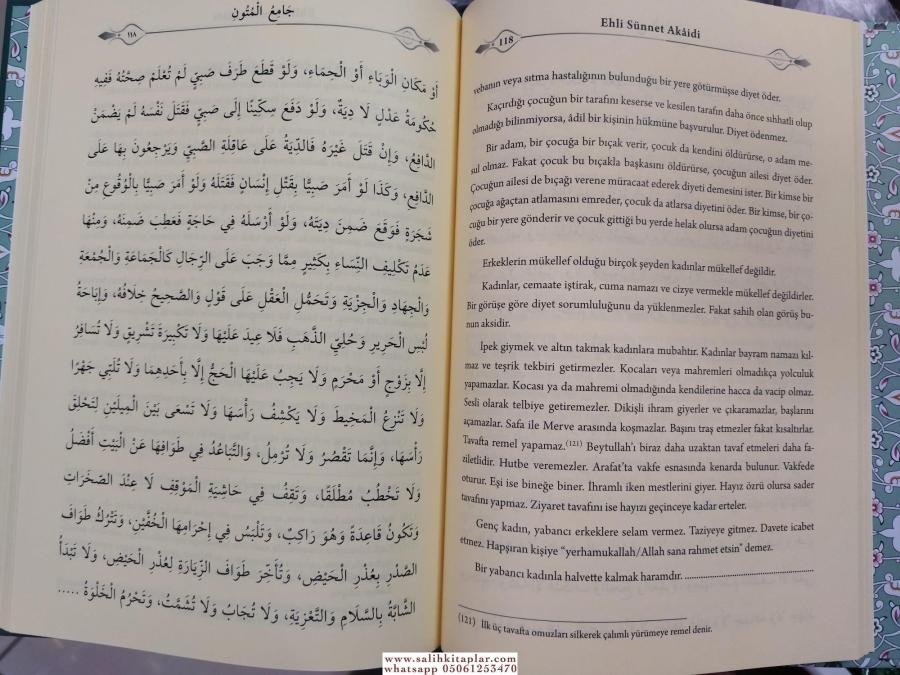 جَامِعُ الْمُتُونِ
١١٨
أَوْ مَكَانِ الْوَبَاءِ أَوْ الْحِمَاءِ، وَلَوْ قَطَعَ طَرَفَ صَبِيٍّ لَمْ تُعْلَمْ صِحَّتُهُ فَفِيهِ
حُكُومَةُ عَدْلٍ لَا دِيَةٌ، وَلَوْ دَفَعَ سِكِّينًا إِلَى صَبِيٍّ فَقَتَلَ نَفْسَهُ لَمْ يَضْمَنْ
الدَّافِعُ، وَإِنْ قَتَلَ غَيْرَهُ فَالدِّيَةُ عَلَى عَاقِلَةِ الصَّبِيِّ وَيَرْجِعُونَ بِهَا عَلَى
الدَّافِعِ، وَكَذَا لَوْ أَمَرَ صَبِيًّا بِقَتْلِ إِنْسَانٍ فَقَتَلَهُ وَلَوْ أَمَرَ صَبِيًّا بِالْوُقُوعِ مِنْ
شَجَرَةٍ فَوَقَعَ ضَمِنَ دِيَتَهُ، وَلَوْ أَرْسَلَهُ فِي حَاجَةٍ فَعَطِبَ ضَمِنَهُ، وَمِنْهَا
عَدَمُ تَكْلِيفِ النِّسَاءِ بِكَثِيرٍ مِمَّا وَجَبَ عَلَى الرِّجَالِ كَالْجَمَاعَةِ وَالْجُمُعَةِ
وَالْجِهَادِ وَالْجِزْيَةِ وَتَحَمُّلِ الْعَقْلِ عَلَى قَوْلٍ وَالصَّحِيحُ خِلَافُهُ، وَإِبَاحَةُ
لُبْسِ الْحَرِيرِ وَحُلِيِّ الذَّهَبِ فَلَا عِيدَ عَلَيْهَا وَلَا تَكْبِيرَةَ تَشْرِيقٍ وَلَا تُسَافِرُ
إِلَّا بِزَوْجٍ أَوْ مَحْرَمٍ وَلَا يَجِبُ عَلَيْهَا الْحَجُّ إِلَّا بِأَحَدِهِمَا وَلَا تُلَبِّي جَهْرًا
وَلَا تَنْزِعُ الْمَخِيطَ وَلَا يَكْشِفُ رَأْسَهَا وَلَا تَسْعَى بَيْنَ الْمِيلَيْنِ لِتَحْلِقَ
رَأْسَهَا، وَإِنَّمَا تَقْصُرُ وَلَا تَرْمِلُ، وَالتَّبَاعُدُ فِي طَوَافِهَا عَنْ الْبَيْتِ أَفْضَلُ
وَلَا تَخْطُبُ مُطْلَقًا، وَتَقِفُ فِي حَاشِيَةِ الْمَوْقِفِ لَا عِنْدَ الصَّخَرَاتِ
وَتَكُونُ قَاعِدَةً وَهُوَ رَاكِبٌ، وَتَلْبَسُ فِي إِحْرَامِهَا الْخُفَّيْنِ، وَتَتْرُكُ طَوَافَ
الصَّدْرِ بِعُذْرِ الْحَيْضِ، وَتُؤَخِّرُ طَوَافَ الزِّيَارَةِ لِعُذْرِ الْحَيْضِ، وَلَا تَبْدَأُ
الشَّابَّةُ بِالسَّلَامِ وَالتَّعْزِيَةِ، وَلَا تُجَابُ وَلَا تُشَمَّتُ، وَتَحْرُمُ الْخَلْوَةُ .....
Ehli Sünnet Akâidi
118
vebanın veya sıtma hastalığının bulunduğu bir yere götürmüşse diyet öder.
Kaçırdığı çocuğun bir tarafını keserse ve kesilen tarafın daha önce sıhhatli olup
olmadığı bilinmiyorsa, âdil bir kişinin hükmüne başvurulur. Diyet ödenmez.
Bir adam, bir çocuğa bir bıçak verir, çocuk da kendini öldürürse, o adam me-
sul olmaz. Fakat çocuk bu bıçakla başkasını öldürürse, çocuğun ailesi diyet öder.
Çocuğun ailesi de bıçağı verene müracaat ederek diyeti demesini ister. Bir kimse bir
çocuğa ağaçtan atlamasını emreder, çocuk da atlarsa diyetini öder. Bir kimse, bir ço-
cuğu bir yere gönderir ve çocuk gittiği bu yerde helak olursa adam çocuğun diyetini
öder.
Erkeklerin mükellef olduğu birçok şeyden kadınlar mükellef değildir.
Kadınlar, cemaate iştirak, cuma namazı ve cizye vermekle mükellef değildirler.
Bir görüşe göre diyet sorumluluğunu da yüklenmezler. Fakat sahih olan görüş bu-
nun aksidir.
İpek giymek ve altın takmak kadınlara mubahtır. Kadınlar bayram namazı kıl-
maz ve teşrik tekbiri getirmezler. Kocaları veya mahremleri olmadıkça yolculuk
yapamazlar. Kocası ya da mahremi olmadığında kendilerine hacca da vacip olmaz.
Sesli olarak telbiye getiremezler. Dikişli ihram giyerler ve çıkaramazlar, başlarını
açamazlar. Safa ile Merve arasında koşmazlar. Başını traş etmezler fakat kısaltırlar.
Tavafta remel yapamaz.(121) Beytullah'ı biraz daha uzaktan tavaf etmeleri daha fa-
ziletlidir. Hutbe veremezler. Arafat'ta vakfe esnasında kenarda bulunur. Vakfede
oturur. Eşi ise bineğe biner. İhramlı iken mestlerini giyer. Hayız özrü olursa sader
tavafını yapmaz. Ziyaret tavafını ise hayızı geçinceye kadar erteler.
Genç kadın, yabancı erkeklere selam vermez. Taziyeye gitmez. Davete icabet
etmez. Hapşıran kişiye "yerhamukallah/Allah sana rahmet etsin" demez.
Bir yabancı kadınla halvette kalmak haramdır. ..............................
(121) İlk üç tavafta omuzları silkerek çalımlı yürümeye remel denir.
www.salihkitaplar.com
whatsapp 05061253470